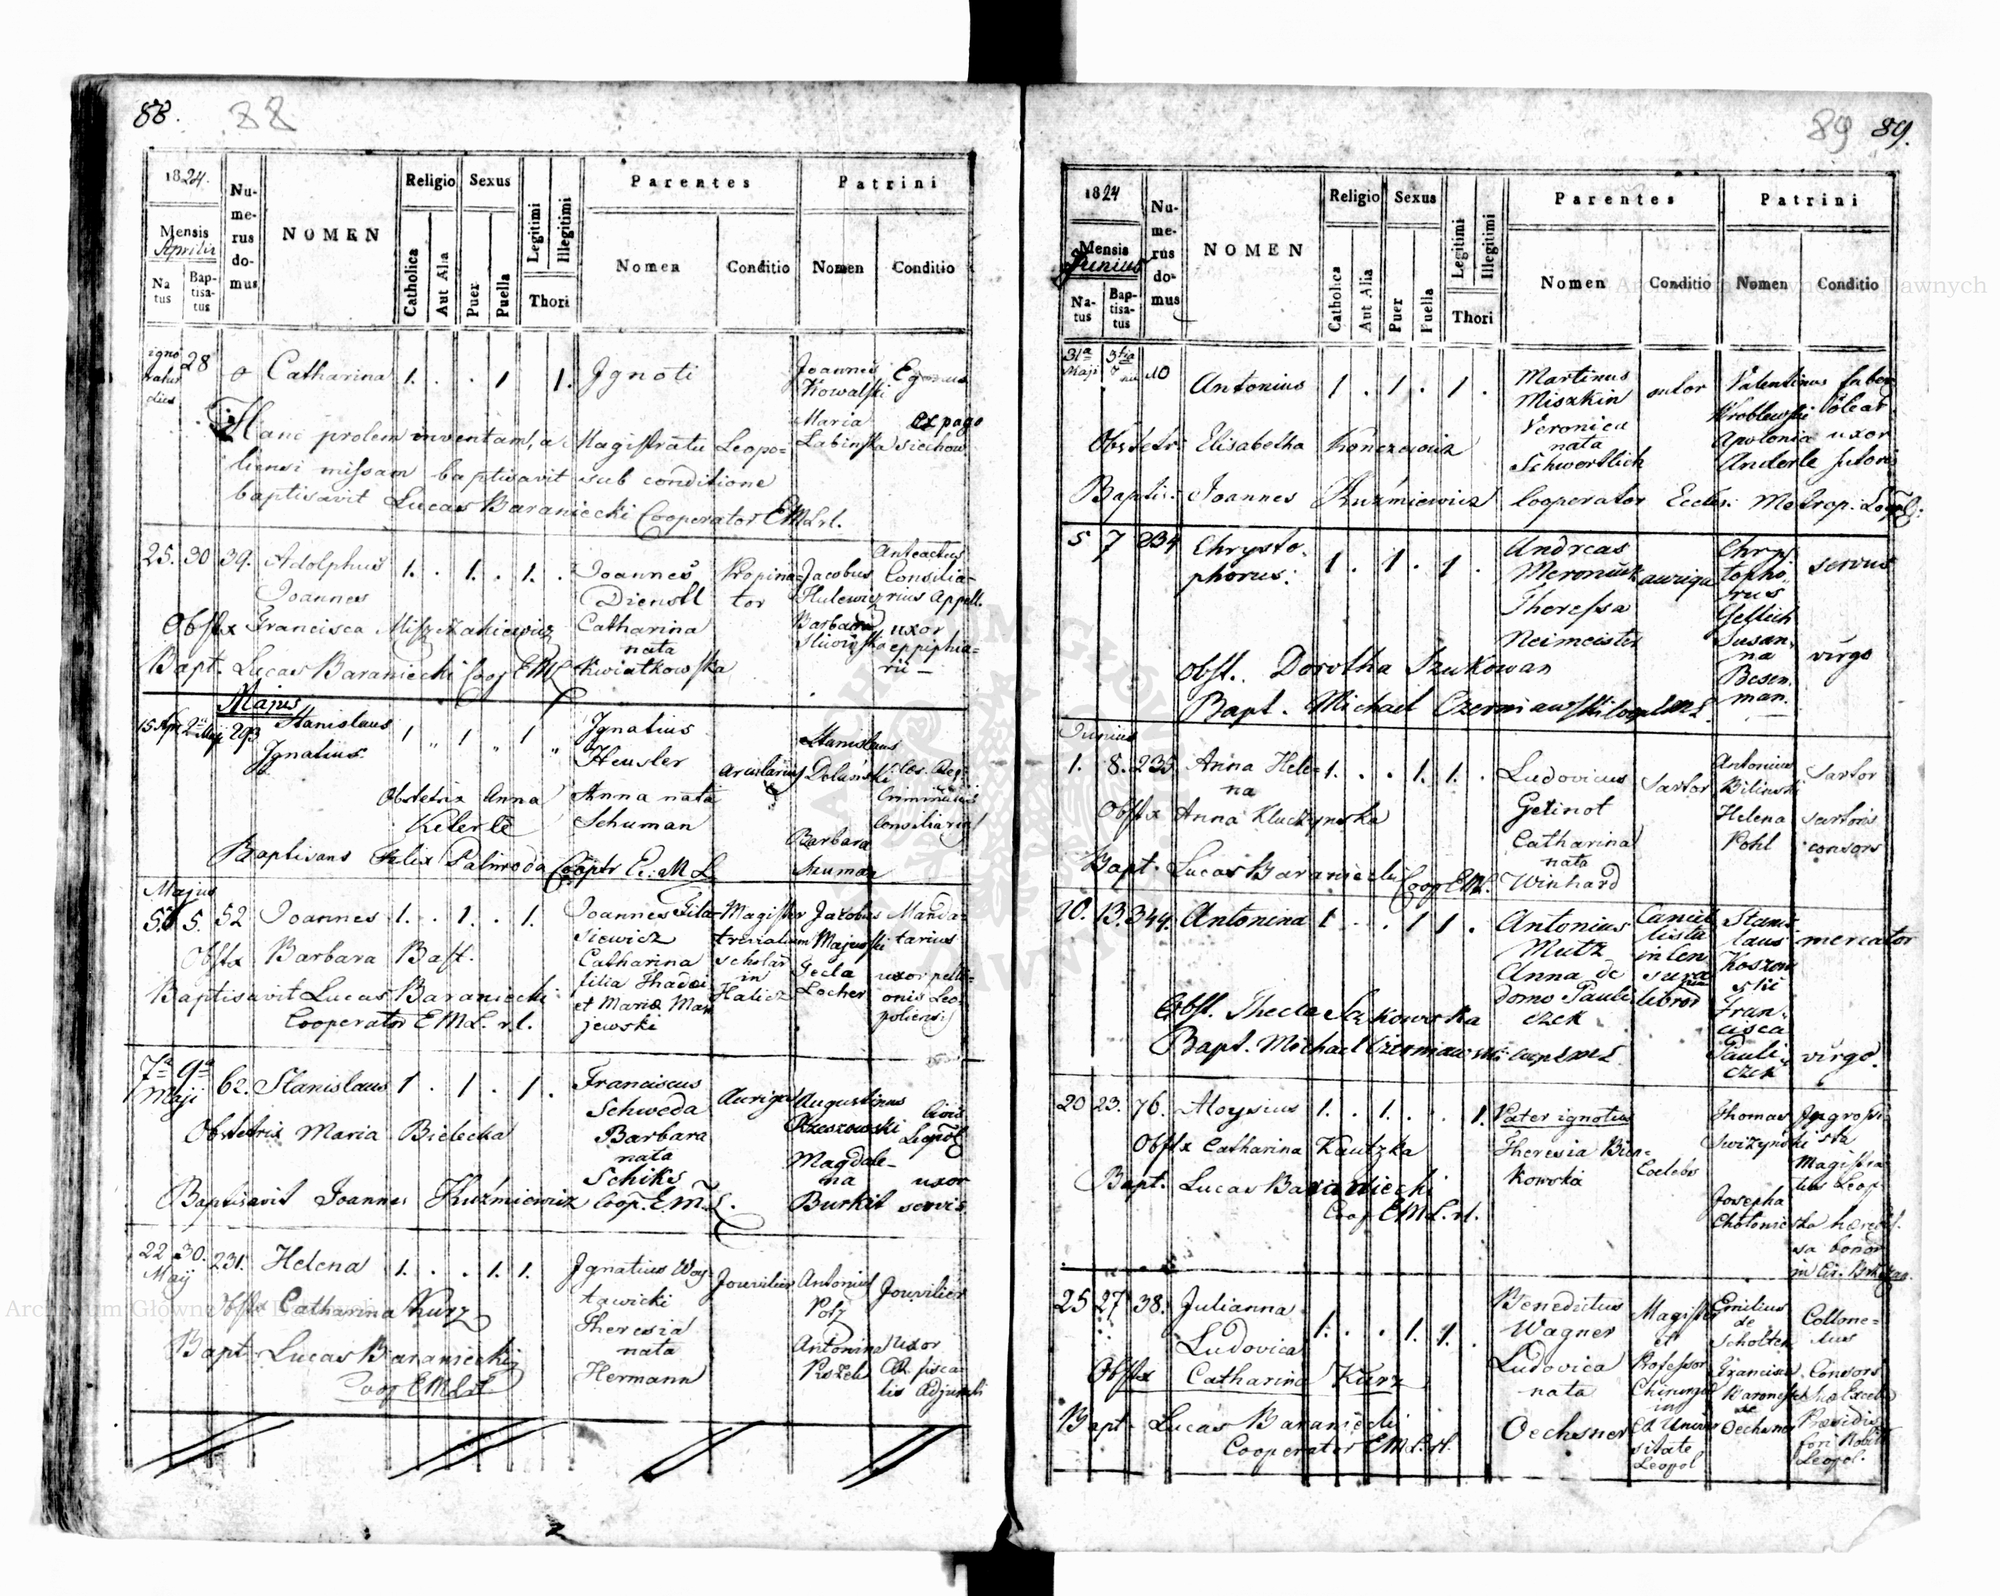 88. 88
1824.
Mensis
Aprilis
Na
tus
Bap-
tisa-
tus
Nu-
me-
rus
do-
mus
NOMEN
Religio
Catholica
Aut Alia
Sexus
Puer
Puella
Legitimi
Illegitimi
Thori
Parentes
Nomen Conditio
Patrini
Nomen Conditio
28 0 Catharina 1. . . 1 1. Ignoti
Joannes
Kowalski
Maria ex pago
Labinska
Hanc prolem inventam, a Magistratu Leopo-
liensi missam baptisavit sub conditione
baptisavit Lucas Baraniecki Cooperator EMLrl.
25. 30 39. Adolphus
Joannes
1. . 1. . 1. .
Joannes
Dienstl
Catharina
nata
Kwiatkowska
Propina-
tor
Jacobus
Hulewicz
Barbara
Anteactus
Consilia-
rius Appell.
uxor
Obstx Francisca
Bapt. Lucas Baraniecki Coop EML
Majus
15 Apr 2 Maji 293 Stanislaus
Ignatius
1 " 1 " 1 "
Ignatius
Heusler
Anna nata
Schuman
Arcularius
Stanislaus
Barbara
Szuman
Criminalis
Consiliarius
Obstetrix Anna
Keterle
Baptisans Felix Palmoda Cooptr Ec. M L
Majus
5. 5. 52 Joannes 1. . 1. . 1.
Joannes
Catharina
filia Thadei
et Mariæ Mar
jewski
Magister
trivialium
scholar
in
Halicz
Jacobus
Majewski
Tecla
Locher
Manda-
tarius
uxor pelli-
onis Leo
poliensis
Obstx Barbara Bast.
Baptisavit Lucas Baraniecki
Cooperator EML. rl.
7a 9a
Maji
62. Stanislaus 1 . 1 . 1 .
Franciscus
Schweda
Barbara
nata
Schiks
Auriga
Augustinus
Rzeszowski
Magdale-
na
Burkit
Civis
Leopol
uxor
servi
Obstetrix Maria Bielecka
Baptisavit Joannes Kuźmiewicz Coop. E.M.L.
22 30. 231. Helena 1. . . 1. 1.
May
Ignatius Woy-
tawicki
Theresia
nata
Hermann
Jouvilier
Antonius
Potz
Antonina
Jouvilier
uxor
fisca-
lis Adjuncti
Obstx Catharina Kurz
Bapt. Lucas Baraniecki
Coop EMLrl.
89 89.
1824
Mensis
Junius
Na-
tus
Bap-
tisa-
tus
Nu-
me-
rus
do-
mus
NOMEN
Religio
Catholica
Aut Alia
Sexus
Puer
Puella
Legitimi
Illegitimi
Thori
Parentes
Nomen Conditio
Patrini
Nomen Conditio
31a
Maji
10 Antonius 1 . 1 . 1 .
Martinus
Miszkin
Veronica
nata
Schwertlich
sutor
Valentinus
Wroblewski
Apolonia
Anderle
faber
uxor
sutoris
Obstetr: Elisabetha Konczewicz
Baptis: Joannes Kuzmiewicz Cooperator Eccles: Metrop: Leopol:
5 7 234 Chrysto-
phorus.
1 . 1 . 1 .
Andreas
Meroniuk
Theressa
Neimeister
auriga
Chrys
topho-
rus
Gellich
Susan-
na
Besen
man.
servus
virgo
Obst. Dorotha Szukowan
Bapt. Michael Czerniawski
Junius
1. 8. 235 Anna Hele-
na
1. . . 1. 1. .
Ludovicus
Getinot
Catharina
nata
Winhard
Sartor
Antonius
Bilinski
Helena
Pohl
Sartor
sartoris
consors
Obstx Anna Kluczynska
Bapt. Lucas Baraniecki Coop EML.
10. 13. 344. Antonina 1 . . 1 1 .
Antonius
Mutz
Anna de
domo Pauli
czek
Cancel
lista
in Cen
sura
librod
Stanis
laus
Koszow
ski
Fran-
cisca
Pauli-
czek
mercator
virgo.
Obst. Thecla Sakowska
Bapt. Michael Czerniawski
20 23. 76. Aloysius 1. . 1. . . 1.
Pater ignotus
Theresia Bien-
kowska
Coelebs
Thomas
Josepha
Ingrossi
sta
Magistra
tus Leop.
Obstx Catharina Kautzka
Bapt. Lucas Baraniecki
Coop EML.rl.
25 27 38. Julianna
Ludovica
1. . . 1. 1. .
Benedictus
Wagner
Ludovica
nata
Oechsner
Magister
et
Professor
Chirurgiæ
in
Univer
sitate
Leopol
Emilius
de
Scholten
Francisca
Baronessa
de
Oechsner
Collone-
llus
Consors
Præsidis
fori Nobil
Leopol.
Obstx Catharina Kurz
Bapt. Lucas Baraniecki
Cooperator EML.rl.